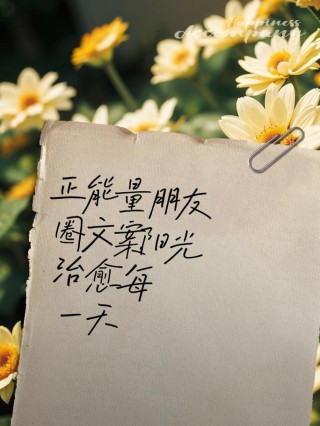 Happiness
accompany
正能量朋友
圈文案阳光
治愈每
一天